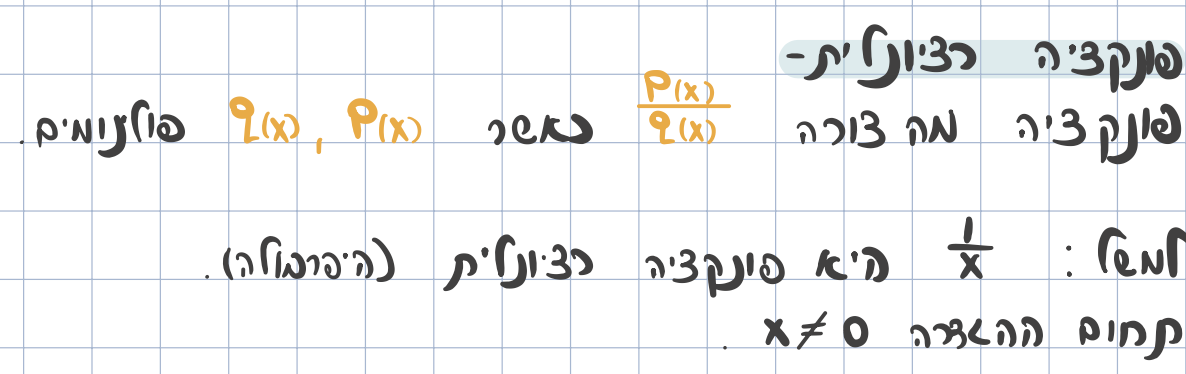 פונקציה רציונלית-
פונקציה מה צורה P(x)/q(x) כאשר P(x) , q(x) פולינומים.
למשל: 1/x היא פונקציה רציונלית (היפרבולה).
תחום ההגדרה x≠0.